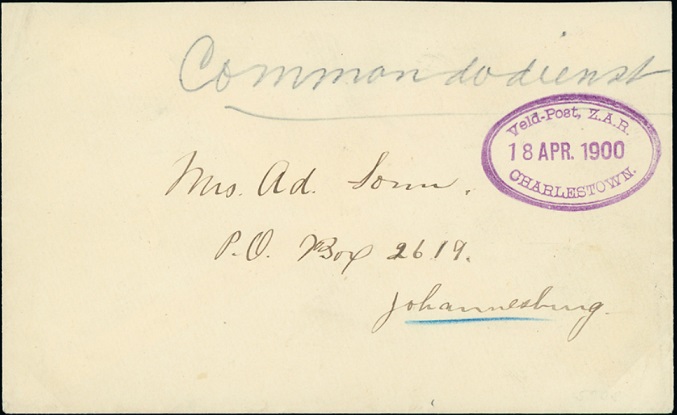 Commandodienst
Veld-Post, Z.A.R.
18 APR. 1900
CHARLESTOWN.
Mrs. Ad. Sonn.
P.O. Box 2619.
Johannesburg.